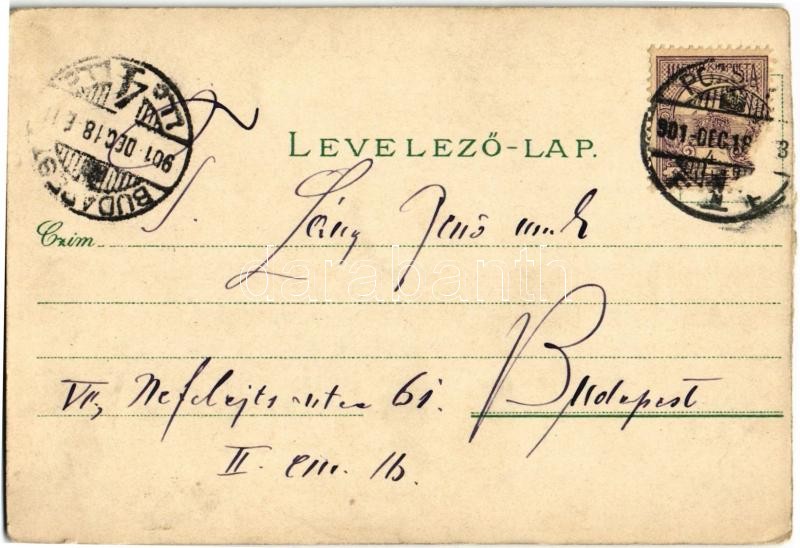 MAGYAR KIR. POSTA
901-DEC.18
BUDAPEST
901-DEC.18
LEVELEZŐ-LAP.
T.
Czim Lány Jenő urnak
darabanth
VII, Nefelejts utca 61. Budapest
II. em. 16.